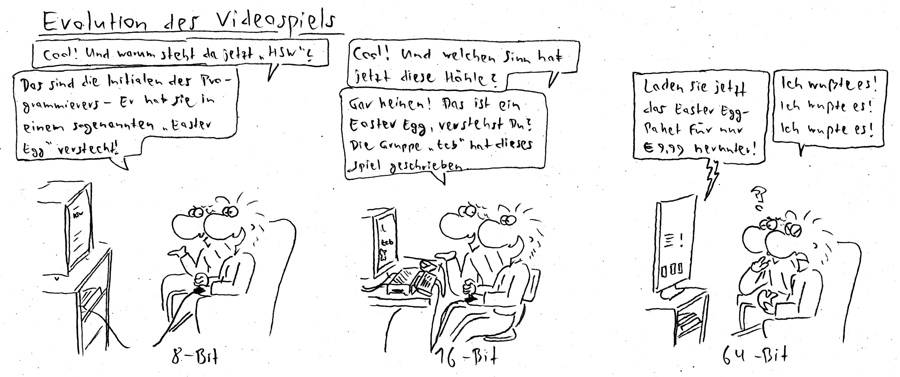 Evolution des Videospiels
Cool! Und warum steht da jetzt „HSW“?
Das sind die Initialen des Pro-
grammierers – Er hat sie in
einem sogenannten „Easter
Egg“ versteckt!
HSW
8-Bit
Cool! Und welchen Sinn hat
jetzt diese Höhle?
Gar keinen! Das ist ein
Easter Egg, verstehst Du?
Die Gruppe „tcb“ hat dieses
Spiel geschrieben.
tcb
16-Bit
Laden Sie jetzt
das Easter Egg-
Paket für nur
€ 9,99 herunter!
Ich wußte es!
Ich wußte es!
Ich wußte es!
!
?
64-Bit